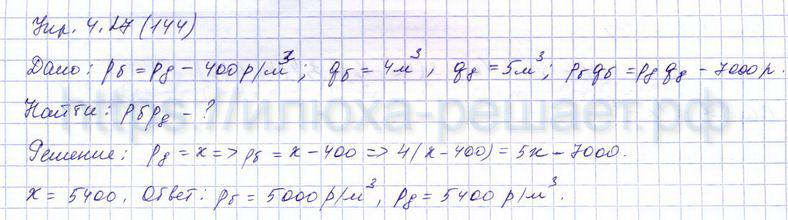 Упр. 4.27 (144)
Дано: pб = pд - 400 р/м³; qб = 4м³, qд = 5м³; pбqб = pдqд - 7000 р.
Найти: pб pд - ?
https://илюха-решает.рф
Решение: pд = x => pб = x - 400 => 4(x - 400) = 5x - 7000.
x = 5400. Ответ: pб = 5000 р/м³, pд = 5400 р/м³.